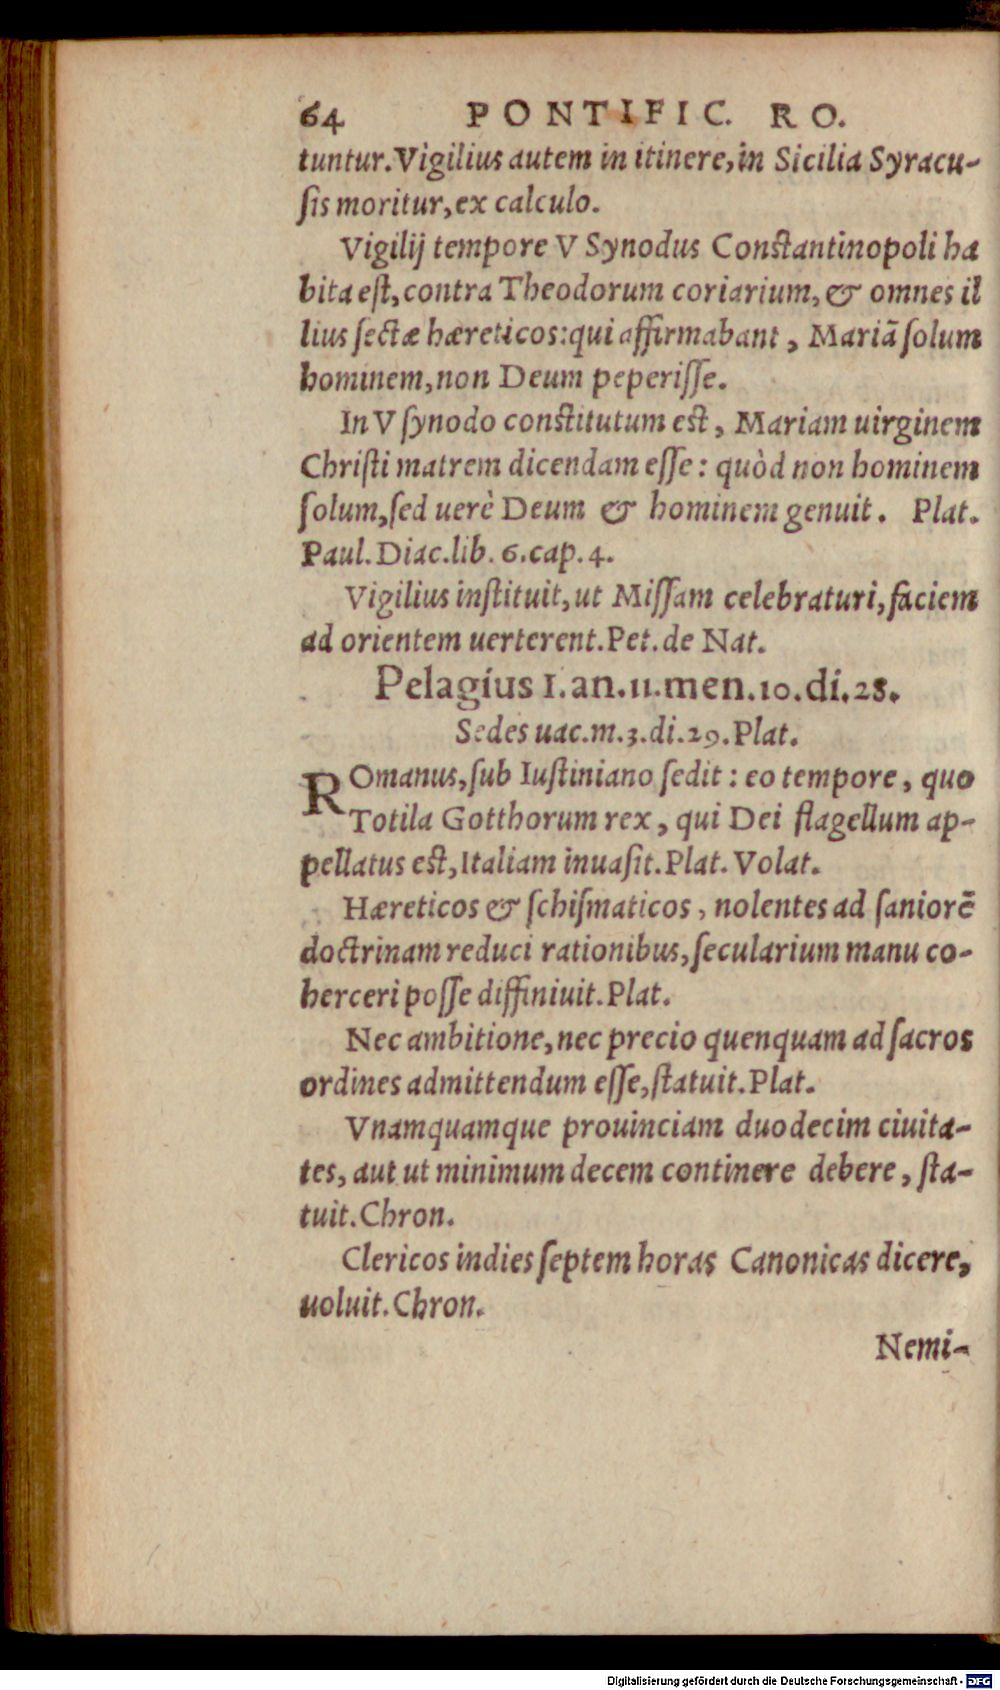 64 PONTIFIC. RO.
tuntur. Vigilius autem in itinere, in Sicilia Syracu-
ſis moritur, ex calculo.
Vigilij tempore V Synodus Conſtantinopoli ha
bita eſt, contra Theodorum coriarium, & omnes il
lius ſectæ hæreticos: qui affirmabant, Mariã ſolum
hominem, non Deum peperiſſe.
In V ſynodo conſtitutum eſt, Mariam uirginem
Chriſti matrem dicendam eſſe: quòd non hominem
ſolum, ſed uerè Deum & hominem genuit. Plat.
Paul. Diac. lib. 6. cap. 4.
Vigilius inſtituit, ut Miſſam celebraturi, faciem
ad orientem uerterent. Pet. de Nat.
Pelagius I. an. 11. men. 10. di. 28.
Sedes uac. m. 3. di. 29. Plat.
ROmanus, ſub Iuſtiniano ſedit: eo tempore, quo
Totila Gotthorum rex, qui Dei flagellum ap-
pellatus eſt, Italiam inuaſit. Plat. Volat.
Hæreticos & ſchiſmaticos, nolentes ad ſaniorẽ
doctrinam reduci rationibus, ſecularium manu co-
herceri poſſe diffiniuit. Plat.
Nec ambitione, nec precio quenquam ad ſacros
ordines admittendum eſſe, ſtatuit. Plat.
Vnamquamque prouinciam duodecim ciuita-
tes, aut ut minimum decem continere debere, ſta-
tuit. Chron.
Clericos indies ſeptem horas Canonicas dicere,
uoluit. Chron.
Nemi-
Digitalisierung gefördert durch die Deutsche Forschungsgemeinschaft - DFG